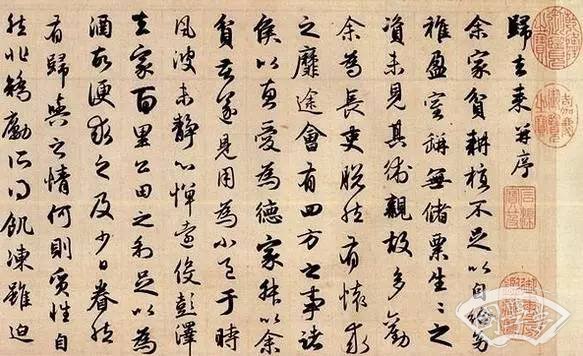 歸去来并序
余家貧耕植不足以自給幼
稚盈室缾無儲粟生〻之
資未見其術親故多勸
余為長吏脫然有懷求
之靡途會有四方之事諸
侯以惠愛為德家叔以余
貧苦遂見用為小邑于時
風波未靜心憚遠役彭澤
去家百里公田之利足以為
酒故便求之及少日眷然
有歸與之情何則質性自
然非矯勵所得飢凍雖迫